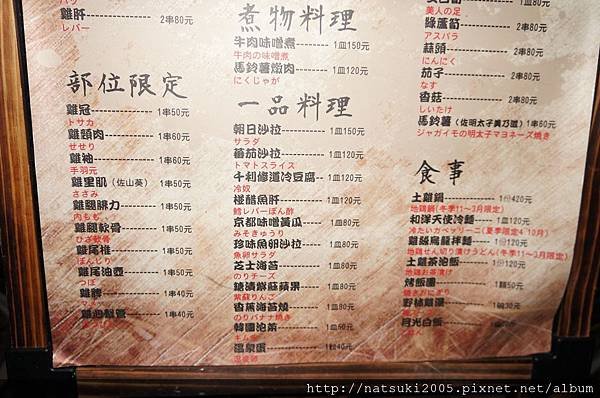 雞肝---------2串80元
レバー
部位限定
雞冠---------1串50元
トサカ
雞頸肉---------1串60元
せせり
雞袖---------1串60元
手羽元
雞里肌(佐山葵)---1串50元
ささみ
雞腿腓力---------1串50元
内もも
雞腿軟骨---------1串50元
ひざ軟骨
雞尾椎---------1串50元
ぼんじり
雞尾油壺---------1串50元
つぼ
雞脾---------1串40元
1串40元
煮物料理
牛肉味噌煮---------1皿150元
牛肉の味噌煮
馬鈴薯燉肉---------1皿120元
にくじゃが
一品料理
朝日沙拉---------1皿150元
サラダ
蕃茄沙拉---------1皿120元
トマトスライス
千利修道冷豆腐--1皿120元
冷奴
椪醋魚肝---------1皿120元
鱈レバーぽん酢
京都味噌黃瓜-----1皿80元
みそきゅうり
珍味魚卵沙拉-----1皿80元
魚卵サラダ
芝士海苔---------1皿80元
のりチーズ
紫蘇りんご
香蕉海苔燒-------1皿80元
のりバナナ焼き
韓國泡菜---------1皿50元
キムチ
溫泉蛋---------1顆40元
温泉卵
1串80元
美人の足
綠蘆筍---------2串80元
アスパラ
蒜頭---------2串80元
にんにく
茄子---------2串80元
なす
香菇---------2串80元
しいたけ
馬鈴薯(佐明太子美乃滋)1串80元
ジャガイモの明太子マヨネーズ焼き
食事
土雞鍋---------1份420元
地鶏鍋(冬季11~3月限定)
和洋天使冷麵-----1皿120元
冷たいカペッリーニ(夏季限定4-10月)
雞絲烏龍拌麵---1份120元
地鶏せん切り漬けうどん(冬季11~3月限定)
土雞茶泡飯-------1份120元
地鶏お茶漬け
烤飯糰---------1顆50元
焼きおにぎり
1碗30元
月光白飯---------1
http://natsuki2005.pixnet.net/album